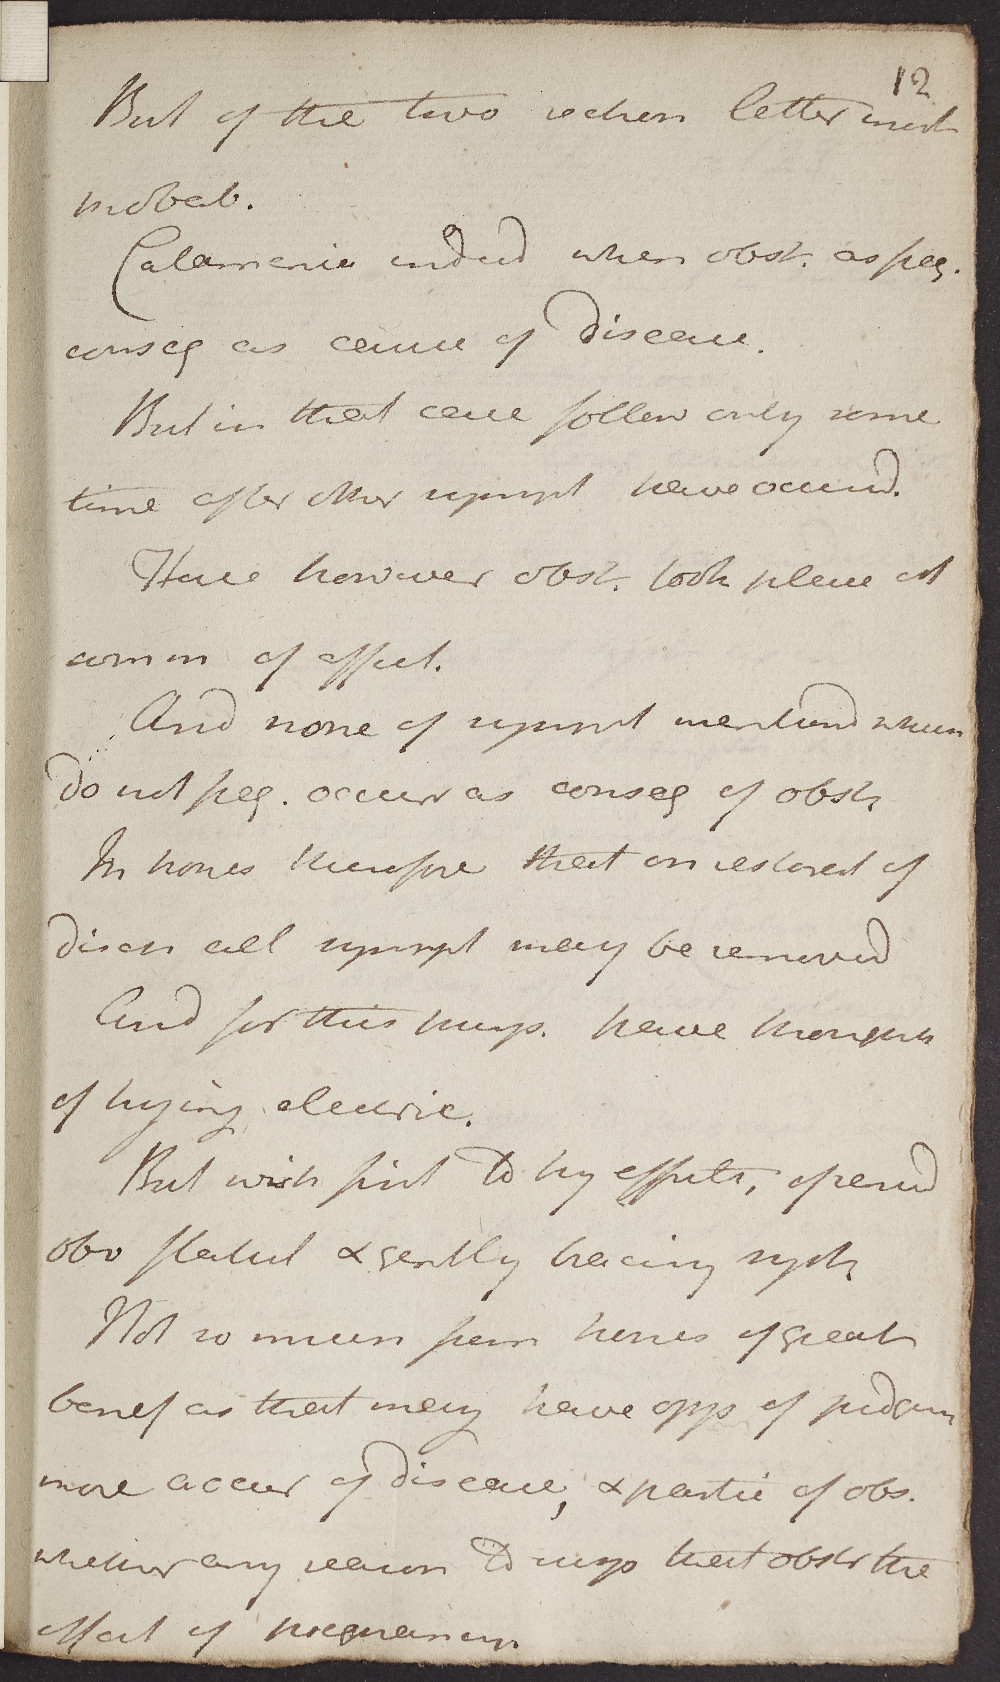 12
But of the two reckon latter most
probab.
Catamenia indeed when obst. as freq.
conseq as cause of Disease.
But in that case follow only some
time after other sympt have occurred.
Here however obst. took place at
comm of affect.
And none of sympt mentiond which
do not freq. occur as conseq of obstr
In hopes therefore that on restorat of
disch all sympt may be removed
And for this purp. have thoughts
of trying electric.
But wish first to try effects, of
obv &gently bracing syst
Not so much from hopes of great
benef as that may have opp of judgin
more accur of disease, & partic of obs.
whether any reason to susp that obstr the
effect of pregnancy.